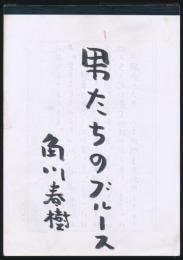 男たちのブルース
角川春樹